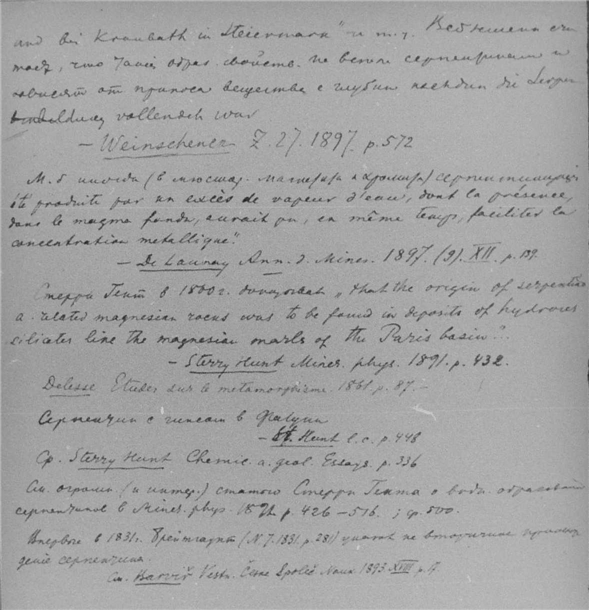 and bei Kraubath in Steiermark" и т.д. Вейншенк счи
тает, что такие образ. свойств. не всем серпентинам и
зависят от приноса вещества с глубин nachdem die Serpen
tinbildung vollendet war
— Weinschenck Z. 27. 1897. p. 572
М. б иногда (в месторож. магнетита и хромита) серпентинизация
été produite par un excès de vapeur d'eau, dont la présence,
dans le magma fondu, aurait pu, en même temps, faciliter la
concentration métallique".
— De Launay Ann. d. Mines. 1897. (9). XII. p. 189.
Стерри Гент в 1860 г. доказывал "that the origin of serpentine
a. related magnesian rocks was to be found in deposits of hydrous
silicates like the magnesian marls of the Paris basin"..
— Sterry Hunt Miner. phys. 1891. p. 432.
Delesse Etudes sur le metamorphisme. 1861. p. 87. —
Серпентин с гипсом в
— St. Hunt l. c. p. 448
Ср. Sterry Hunt Chemic. a. geol. Essays. p. 336
См. огромн. (и интер.) статью Стерри Гента о водн. образовании
серпентинов в Miner. phys. 1891. p. 426 – 516. ; ср. 500.
Впервые в 1831 г. Брейтгаупт (N. J. 1831. p. 281) указал на вторичное происхож
дение серпентина.
См. Barviř Vestn. České Společ Nauk 1893 XVIII p. 7.